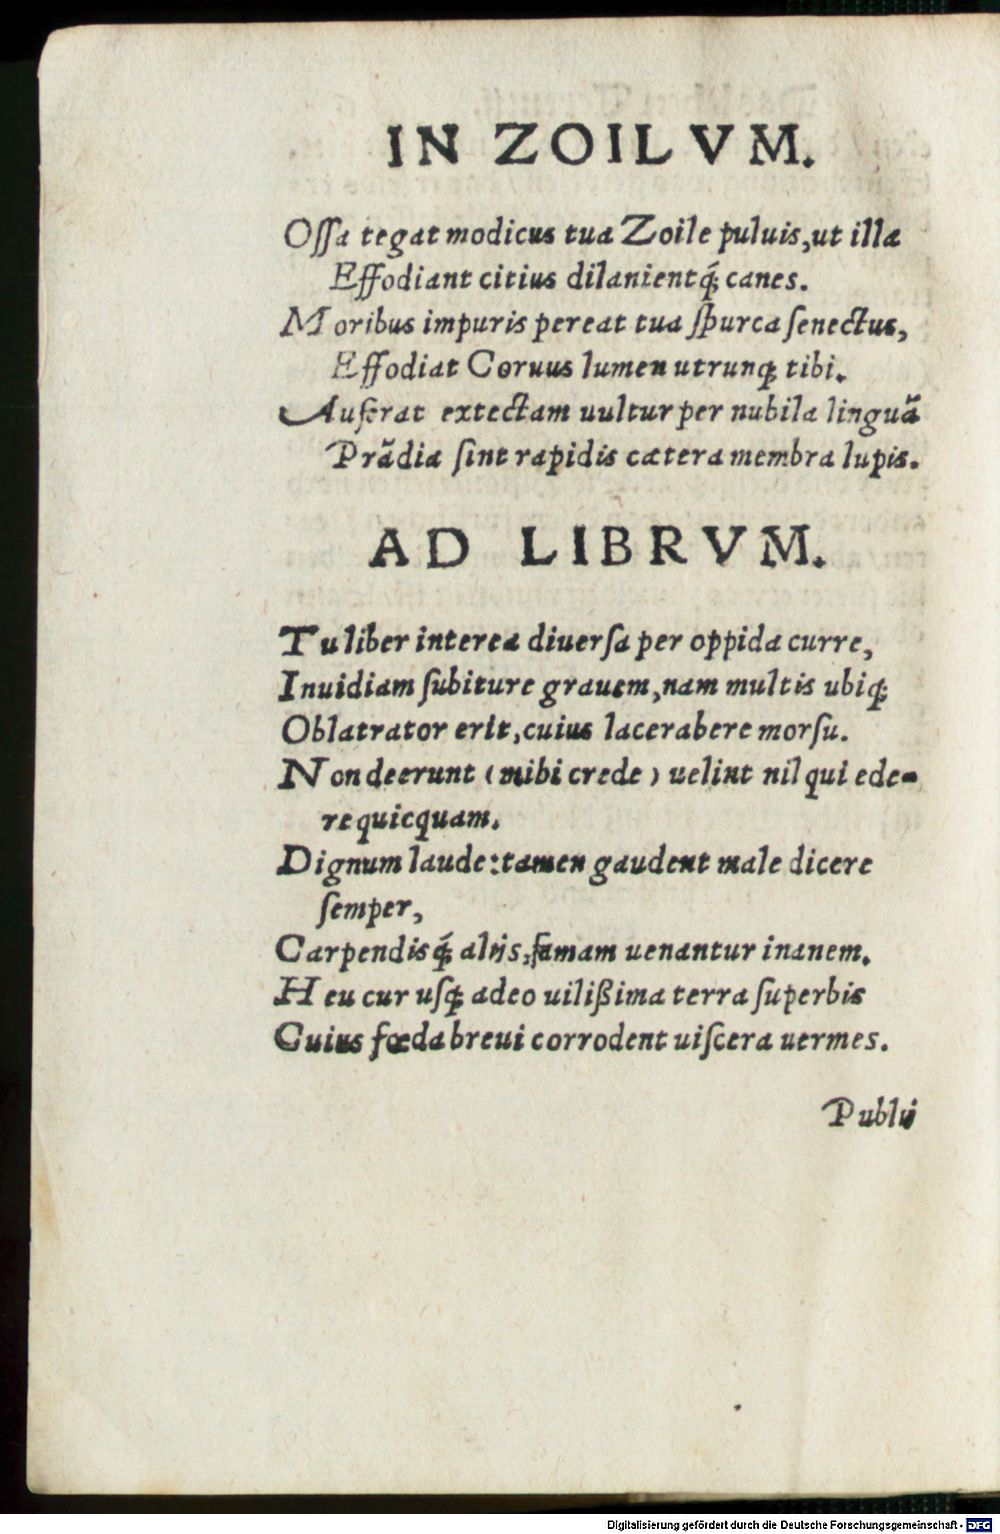 IN ZOILVM.
Oſſa tegat modicus tua Zoile puluis, ut illa
Effodiant citius dilanientq́; canes.
Moribus impuris pereat tua ſpurca ſenectus,
Effodiat Coruus lumen utrunq; tibi.
Auferat extectam uultur per nubila linguã
Prãdia ſint rapidis cætera membra lupis.
AD LIBRVM.
Tu liber interea diuerſa per oppida curre,
Inuidiam ſubiture grauem, nam multis ubiq;
Oblatrator erit, cuius lacerabere morſu.
Non deerunt (mihi crede) uelint nil qui ede-
re quicquam.
Dignum laude: tamen gaudent male dicere
ſemper,
Carpendisq́; alijs, famam uenantur inanem.
Heu cur uſq; adeo uilißima terra ſuperbis
Cuius fœda breui corrodent uiſcera uermes.
Publij
Digitalisierung gefördert durch die Deutsche Forschungsgemeinschaft - DFG